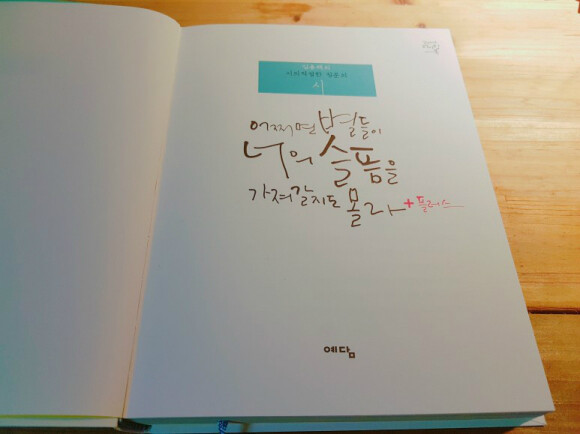 시
어쩌면 별들이
너의 슬픔을
가져갈지도 몰라 +플러스
예담